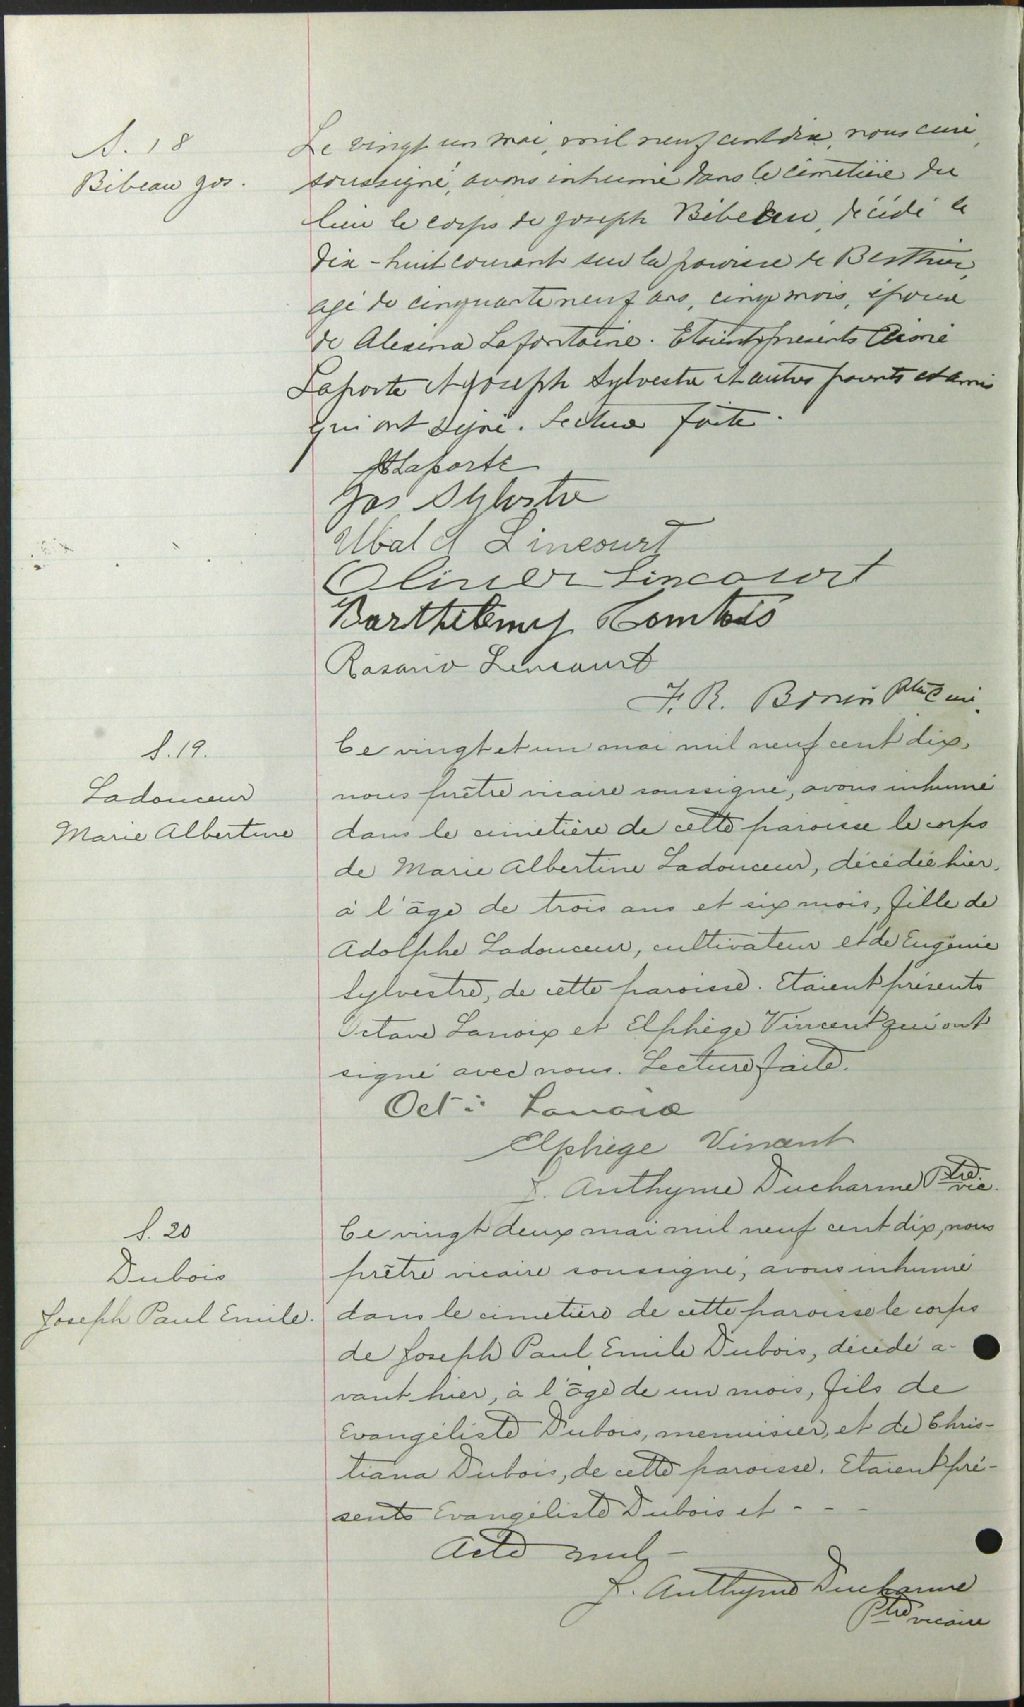 S. 18
Bibeau Jos.
Le vingt un mai, mil neuf cent dix, nous curé,
soussigné, avons inhumé dans le cimetière du
lieu le corps de Joseph Bibeau, décédé le
dix-huit courant sur la paroisse de Berthier,
agé de cinquante neuf ans, cinq mois, époux
de Alexina Lafontaine. Etaient présents Aimé
Laporte et Joseph Sylvestre et autres parents et amis
qui ont signé. Lecture faite.
Laporte
Jos Sylvestre
Ubald Lincourt
Olivier Lincourt
Barthélemy Comtois
Rosario Lincourt
F. R. Bonin Ptre Curé.
S. 19.
Ladouceur
Marie Albertine
Ce vingt et un mai mil neuf cent dix,
nous prêtre vicaire soussigné, avons inhumé
dans le cimetière de cette paroisse le corps
de Marie Albertine Ladouceur, décédée hier,
à l'âge de trois ans et six mois, fille de
Adolphe Ladouceur, cultivateur et de Eugénie
Sylvestre, de cette paroisse. Etaient présents
Octave Lanoix et Elphège Vincent qui ont
signé avec nous. Lecture faite.
Oct: Lanoix
Elphège Vincent
J. Anthyme Ducharme Ptre. vic.
S. 20
Dubois
Joseph Paul Emile.
Ce vingt deux mai mil neuf cent dix, nous
prêtre vicaire soussigné, avons inhumé
dans le cimetière de cette paroisse le corps
de Joseph Paul Emile Dubois, décédé a-
vant hier, à l'âge de un mois, fils de
Evangéliste Dubois, menuisier, et de Chris-
tiana Dubois, de cette paroisse. Etaient pré-
sents Evangéliste Dubois et - - -
Acte nul -
J. Anthyme Ducharme
Ptre vicaire